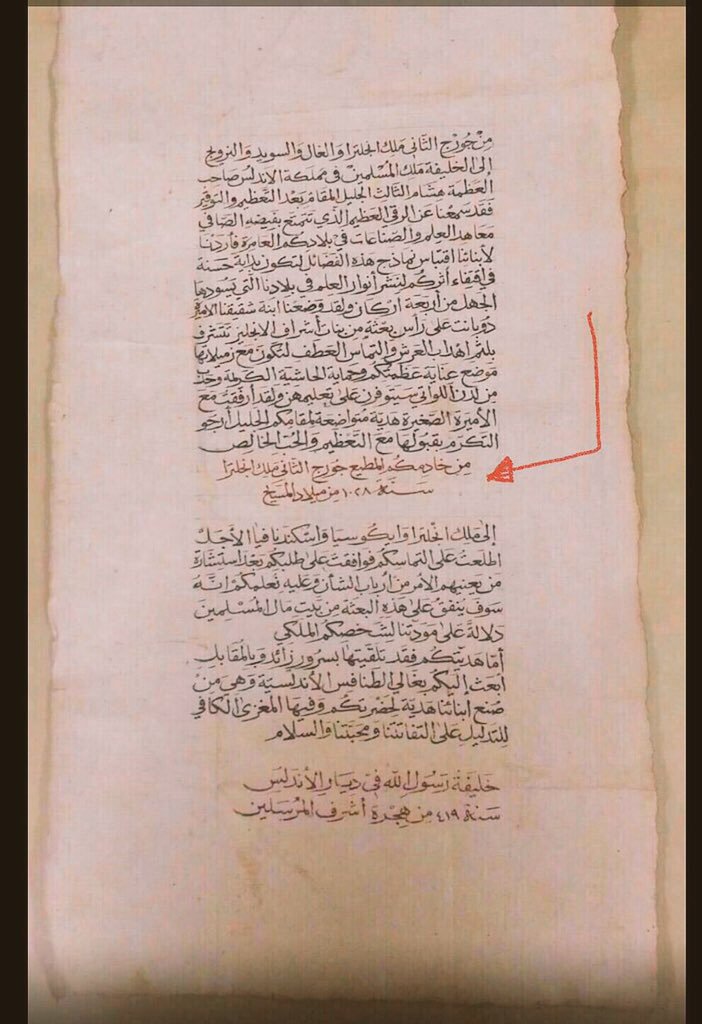 من جورج الثاني ملك انجلترا والغال والسويد والنرويج
إلى الخليفة ملك المسلمين في مملكة الاندلس صاحب
العظمة هشام الثالث الجليل المقام بعد التعظيم والتوقير
فقد سمعنا عن الرقي العظيم الذي تتمتع بفيضه الصافي
معاهد العلم والصناعات في بلادكم العامرة فأردنا
لأبنائنا اقتباس نماذج هذه الفضائل لتكون بداية حسنة
في اقتفاء أثركم لنشر أنوار العلم في بلادنا التي يسودها
الجهل من أربعة أركان ولقد وضعنا ابنة شقيقنا الاميرة
دوبانت على رأس بعثة من بنات أشراف الانجليز تتشرف
بلثم اهداب العرش والتماس العطف لتكون مع زميلاتها
موضع عناية عظمتكم وحماية الحاشية الكريمة وحدب
من لدن اللواتي سيتوفرن على تعليمهن ولقد أرفقت مع
الأميرة الصغيرة هدية متواضعة لمقامكم الجليل أرجو
التكرم بقبولها مع التعظيم والحب الخالص
من خادمكم المطيع جورج الثاني ملك انجلترا
سنة ١٠٢٨ من ميلاد المسيح
إلى ملك انجلترا وايكوسيا واسكندنافيا الأجل
اطلعت على التماسكم فوافقت على طلبكم بعد استشارة
من يعنيهم الأمر من أرباب الشأن وعليه نعلمكم انه
سوف ينفق على هذه البعثة من بيت مال المسلمين
دلالة على مودتنا لشخصكم الملكي
أما هديتكم فقد تلقيتها بسرور زائد وبالمقابل
ابعث إليكم بغالي الطنافس الأندلسية وهي من
صنع ابنائنا هدية لحضرتكم وفيها المغزى الكافي
للتدليل على التفاتتنا ومحبتنا والسلام
خليفة رسول الله في ديار الأندلس
سنة ٤١٩ من هجرة أشرف المرسلين